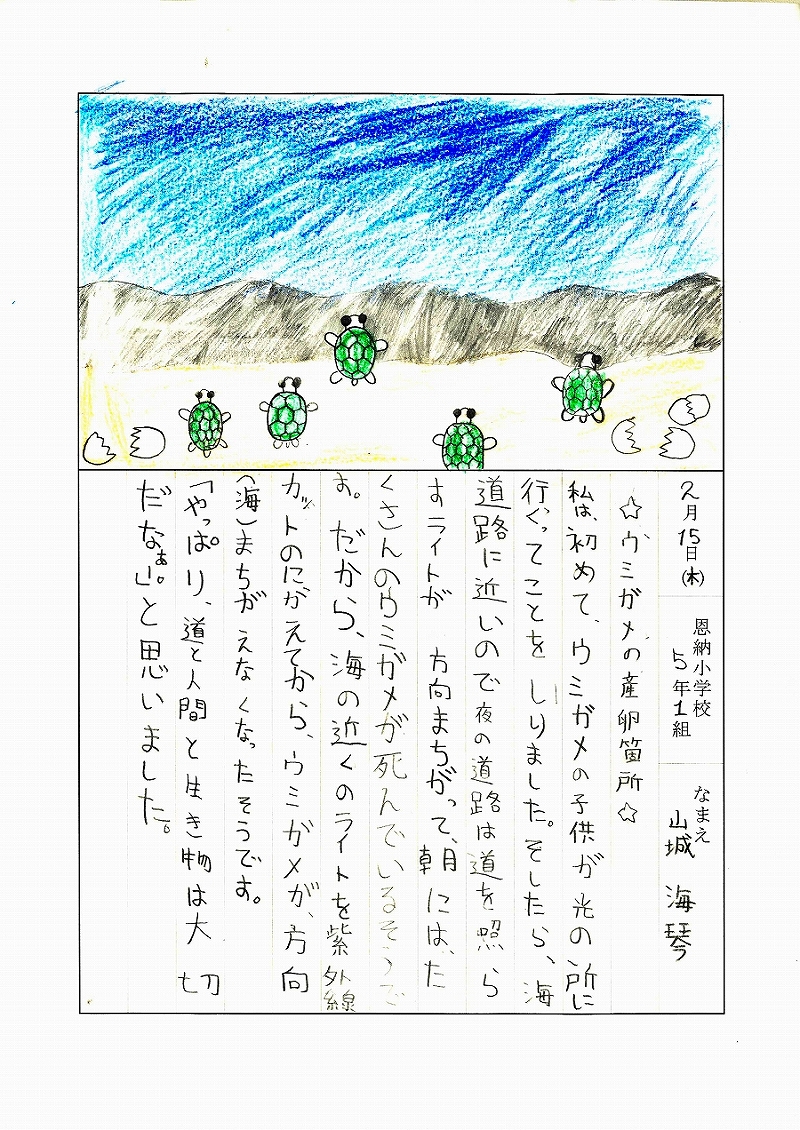 2月15日(木)
恩納小学校
5年1組
なまえ
山城 海琴
☆ウミガメの産卵箇所☆
私は、初めて、ウミガメの子供が光の所に
行くってことをしりました。そしたら、海
道路に近いので夜の道路は道を照ら
すライトが方向まちがって、朝には、た
くさんのウミガメが死んでいるそうで
す。だから、海の近くのライトを紫外線
カットのにかえてから、ウミガメが、方向
(海)まちがえなくなったそうです。
「やっぱり、道と人間と生き物は大切
だなぁ。」と思いました。